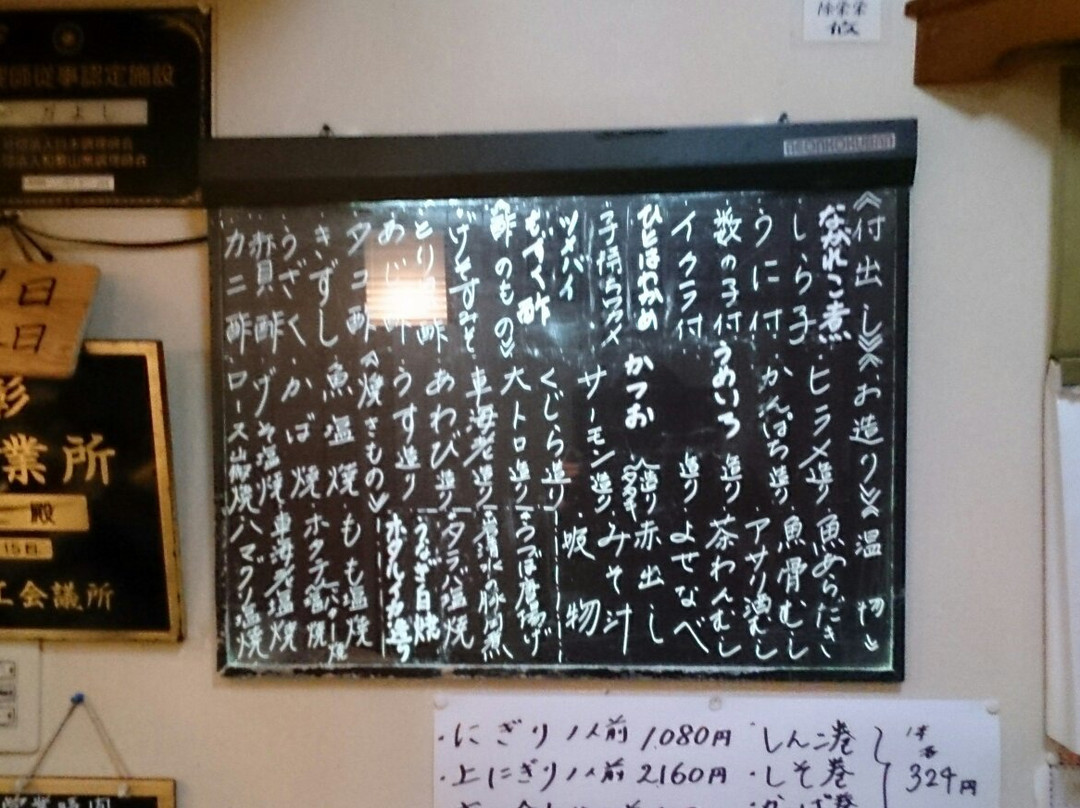 《付出し》
ながれこ煮
しら子
うに付
数の子付
イクラ付
ひとはわかめ
子持ちワカメ
ツメバイ
もずく酢
《酢のもの》
げそすみそ
とり貝酢
あじ酢
タコ酢
きずし
うざく
赤貝酢
カニ酢
《お造り》
ヒラメ造り
かんぱち造り
うめいろ造り
造り
かつお
造り
タタキ
サーモン造り
くじら造り
大トロ造り
車海老造り
あわび造り
うす造り
《焼きもの》
魚塩焼
かば焼
げそ塩焼
ロース
焼
《温物》
魚あらだき
魚骨むし
アサリ酒むし
茶わんむし
よせなべ
赤出し
みそ汁
吸物
うつぼ唐揚げ
タラバ塩焼
うなぎ白焼
ホタルイカ造り
もも塩焼
ホタテ
車海老塩焼
ハマグリ塩焼
NEONKOKUBAN
師従事認定施設
業所
殿
15日
工会議所
日
日
・にぎり1人前 1080円
・上にぎり1人前 2160円
・しんこ巻
・しそ巻
324円
営業時間